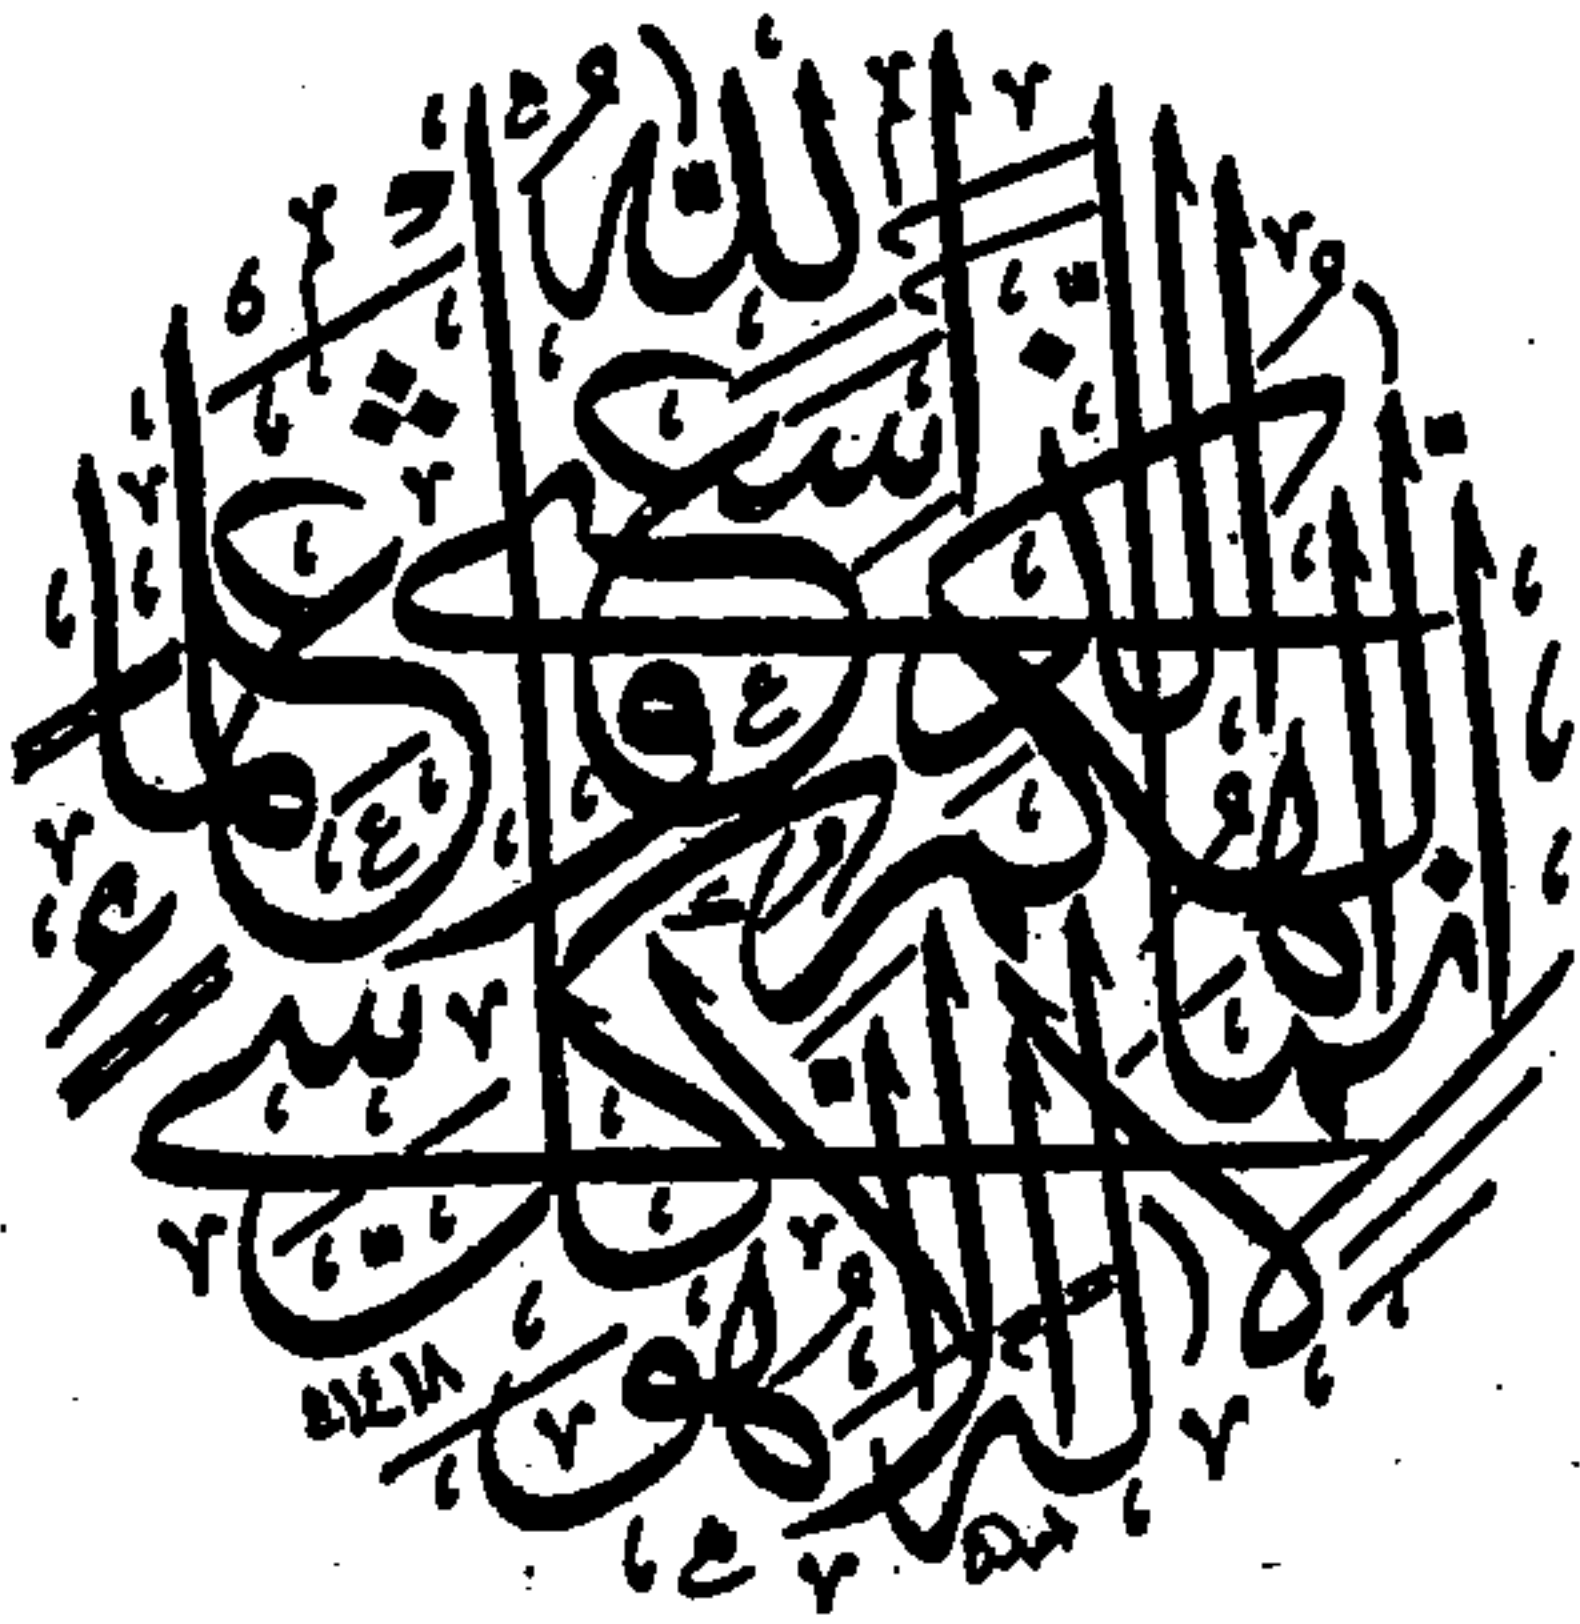 إِنَّمَا إِلَٰهُكُمُ اللَّهُ الَّذِي لَا إِلَٰهَ إِلَّا هُوَ وَسِعَ كُلَّ شَيْءٍ عِلْمًا
١٤١٨ه